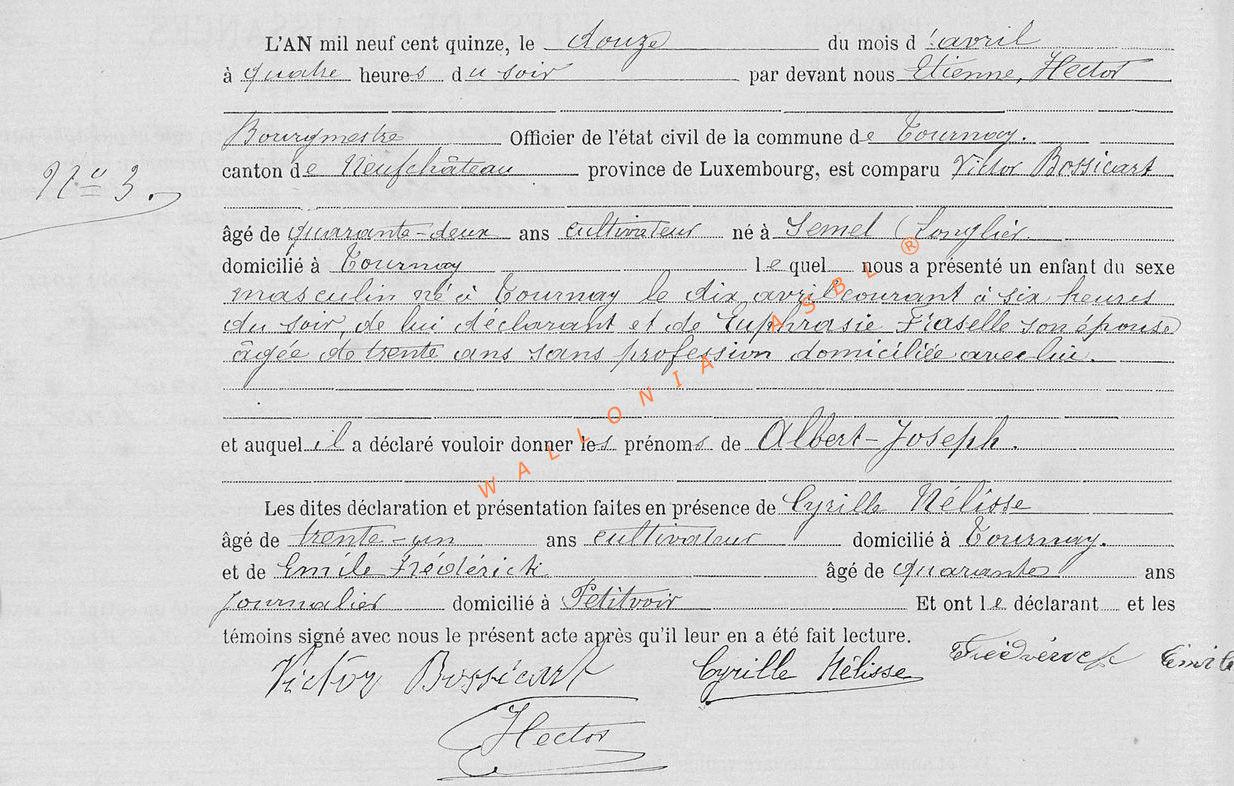 L'AN mil neuf cent quinze, le douze du mois d'avril
à quatre heures du soir par devant nous Etienne, Hector
Bourgmestre Officier de l'état civil de la commune de Tournay.
N° 3.
canton de Neufchâteau province de Luxembourg, est comparu Victor Bossicart
âgé de quarante-deux ans cultivateur né à Semel (Longlier
domicilié à Tournay lequel nous a présenté un enfant du sexe
masculin né à Tournay le dix avril courant à six heures
du soir, de lui déclarant et de Euphrasie Fraselle son épouse
âgée de trente ans sans profession domiciliée avec lui.
et auquel il a déclaré vouloir donner les prénoms de Albert-Joseph.
Les dites déclaration et présentation faites en présence de Cyrille Nélisse
âgé de trente-un ans cultivateur domicilié à Tournay.
et de Emile Frédérick âgé de quarante ans
journalier domicilié à Petitvoir Et ont le déclarant et les
témoins signé avec nous le présent acte après qu'il leur en a été fait lecture.
Victor Bossicart Cyrille Nélisse Frédérick Emile
Hector
WALLONIA ASBL ®